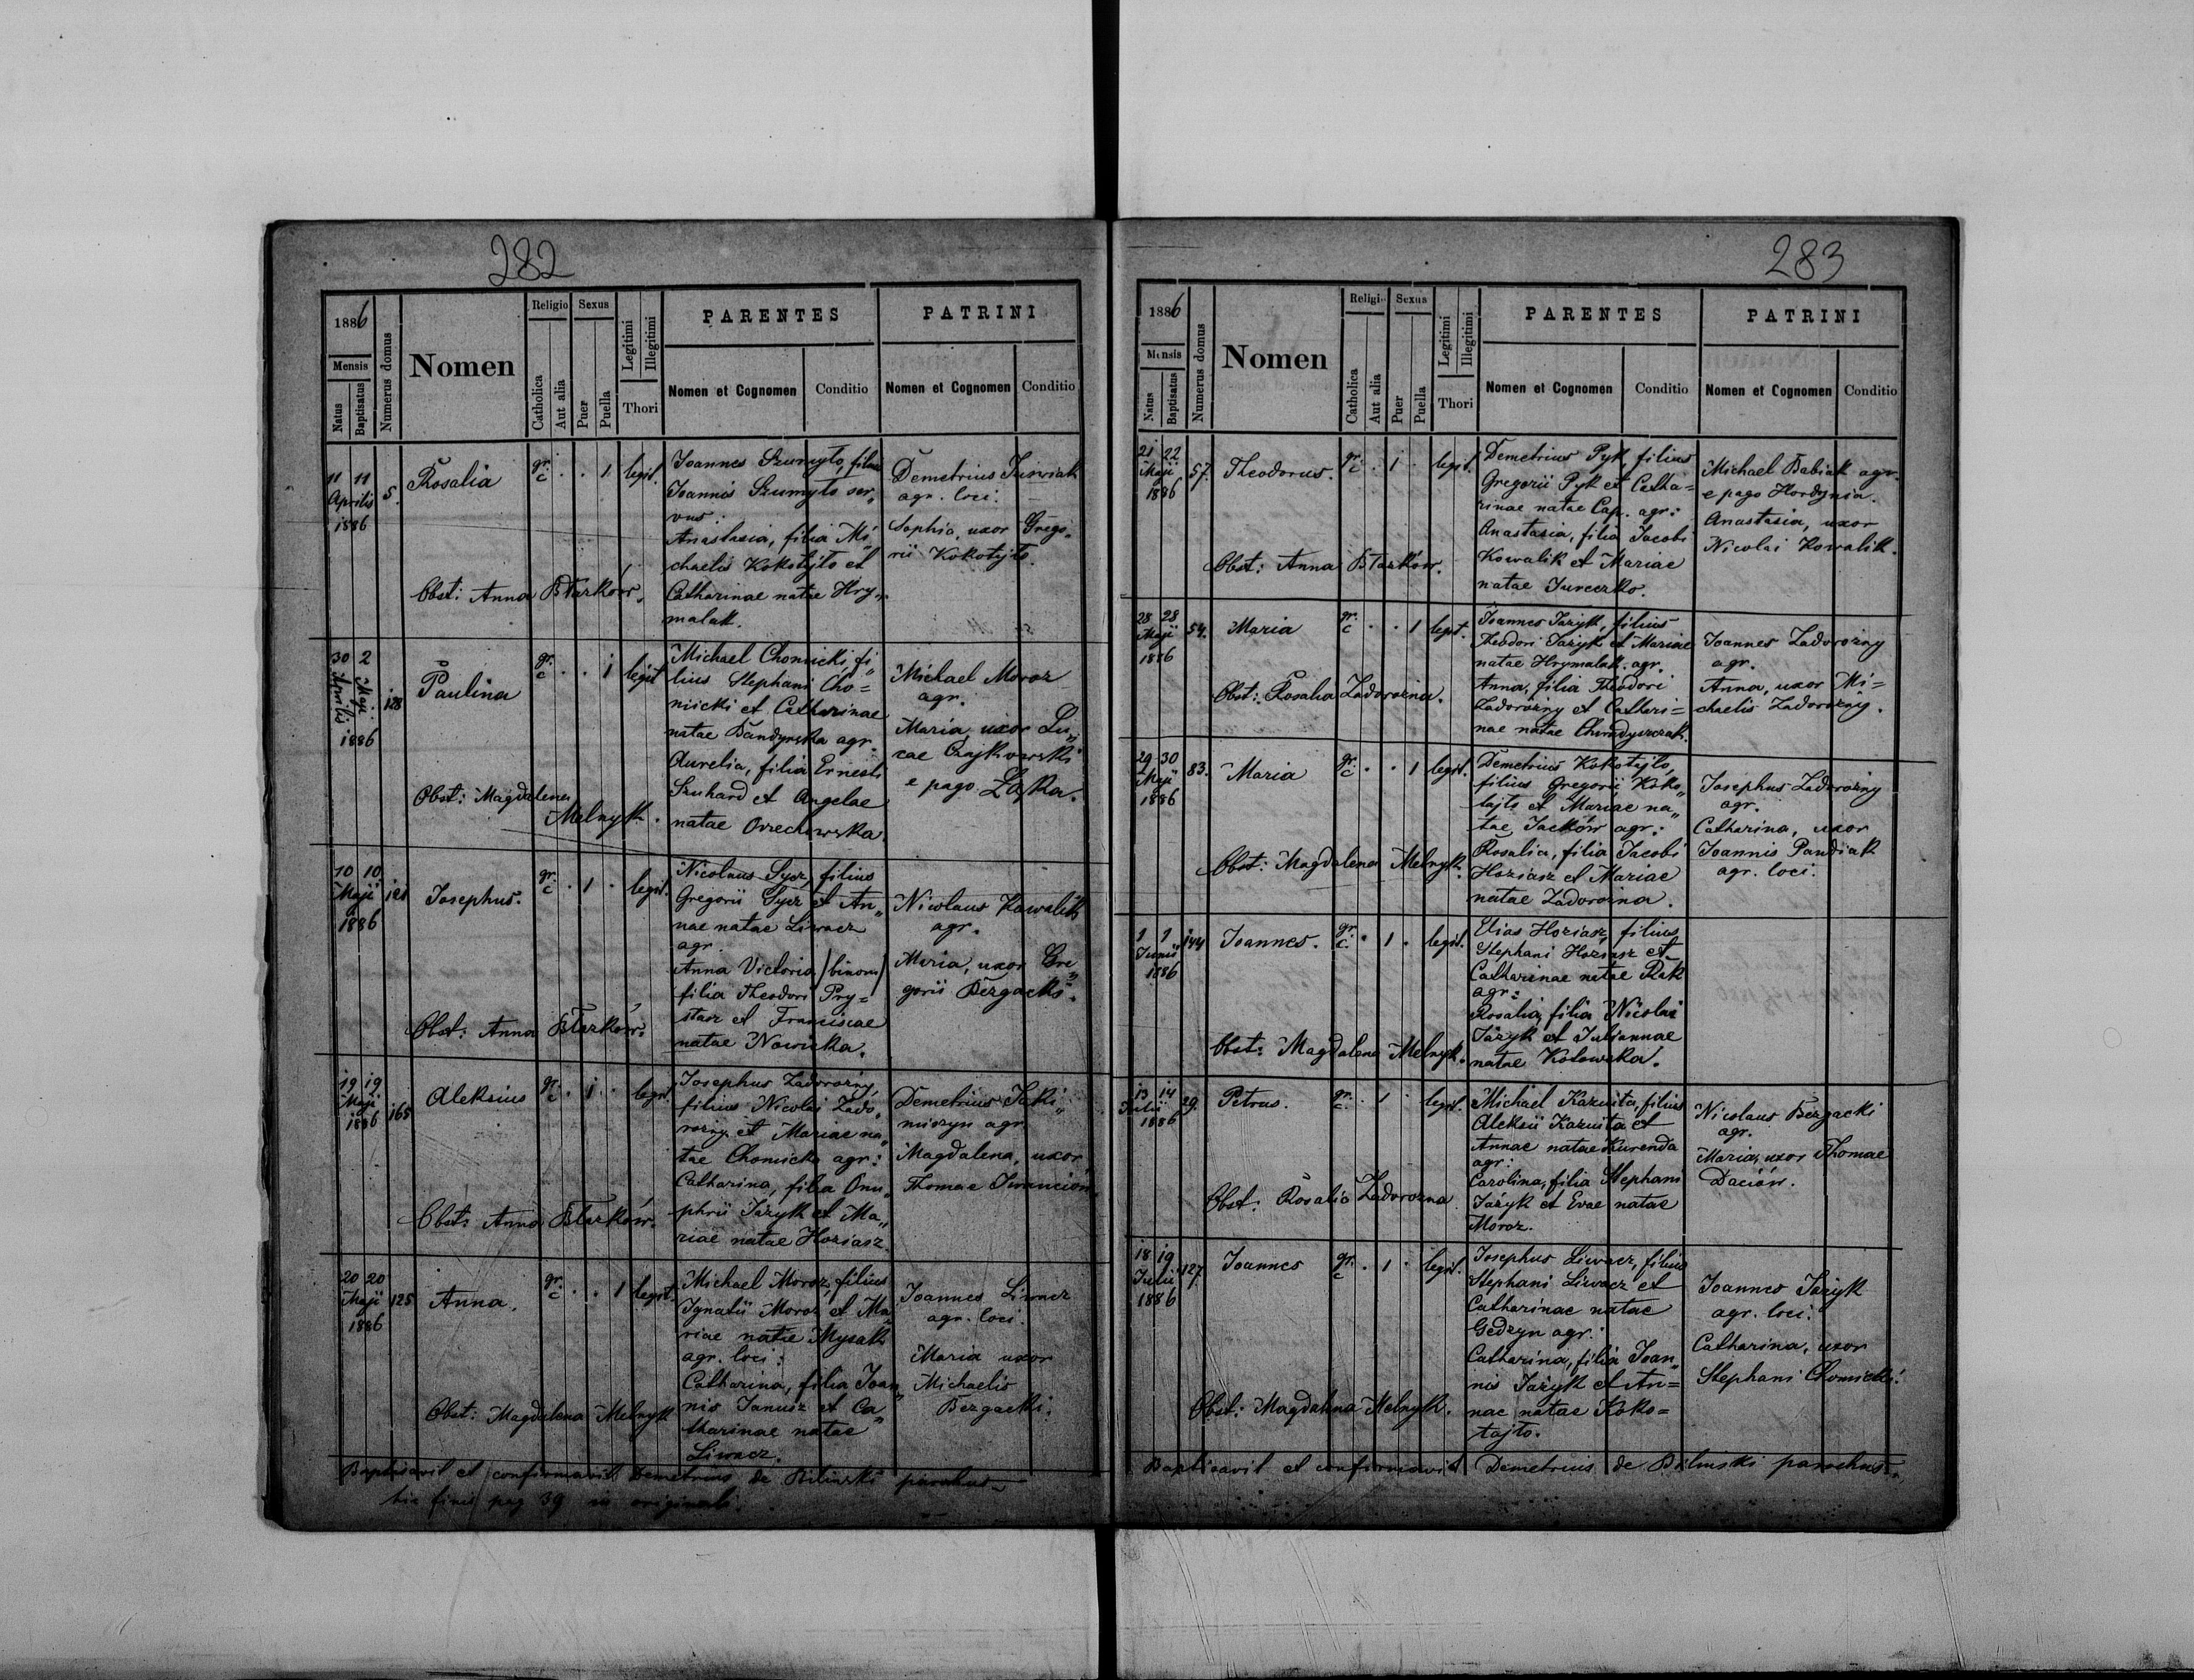 282
1886
Mensis
Natus
Baptisatus
Numerus domus
Nomen
Religio
Catholica
Aut alia
Sexus
Puer
Puella
Legitimi
Illegitimi
Thori
PARENTES
Nomen et Cognomen
Conditio
PATRINI
Nomen et Cognomen
Conditio
11 11
Aprilis
1886
5.
Rosalia
gr. c
1
legit.
Joannes Szumyło, filius
Joannis Szumyło ser„
vus:
Anastasia, filia Mi„
chaelis Kokotajło et
Catharinae natae Hry„
malak.
Demetrius Jurwiak
agr. loci.
Sophia, uxor Grego„
rii Kokotajło.
Obst: Anna Błarków.
30 2
Aprilis Maji
1886
128
Paulina
gr. c
1
legit
Michael Chomicki, fi„
lius Stephani Cho=
micki et Catharinae
natae Bandyrska agr.
Aurelia, filia Ernesti
Szuhard et Angelae
natae Orzechowska.
Michael Moroz
agr.
Maria, uxor Lu„
cae Czajkowski
e pago Łąka.
Obst: Magdalena
Melnyk.
10 10
Maji
1886
121
Josephus.
gr. c
1
legit.
Nicolaus Sycz, filius
Gregorii Sycz et An„
nae natae Liwacz
agr.
Anna Victoria (binom)
filia Theodori Pry=
stasz et Franciscae
natae Nowicka.
Nicolaus Kowalik
agr.
Maria, uxor Gre„
gorii Bezgacki.
Obst: Anna Błarków.
19 19
Maji
1886
165
Aleksius
gr. c
1
legit.
Josephus Zadorożny,
filius Nicolai Zado„
rożny et Mariae na„
tae Chomicka agr:
Catharina, filia Onu„
phrii Jażyk et Ma„
riae natae Hoziasz.
Demetrius Jaki„
miczyn agr.
Magdalena, uxor
Thomae Iwanciów.
Obst: Anna Błarków.
20 20
Maji
1886
125
Anna.
gr. c
1
legit.
Michael Moroz, filius
Ignatii Moroz et Ma„
riae natae Mysak
agr. loci:
Catharina, filia Joan„
nis Janusz et Ca„
tharinae natae
Liwacz.
Joannes Liwacz
agr. loci.
Maria uxor
Michaelis
Bezgacki.
Obst: Magdalena Melnyk
Baptisavit et confirmavit Demetrius de Biliński parochus
hic finis pag 39 in originali.
283
1886
Mensis
Natus
Baptisatus
Numerus domus
Nomen
Religio
Catholica
Aut alia
Sexus
Puer
Puella
Legitimi
Illegitimi
Thori
PARENTES
Nomen et Cognomen
Conditio
PATRINI
Nomen et Cognomen
Conditio
21 22
Maji
1886
57.
Theodorus.
gr. c
1
legit.
Demetrius Pyk, filius
Gregorii Pyk et Catha=
rinae natae Cap. agr:
Anastasia, filia Jacobi
Kowalik et Mariae
natae Jureczko.
Michael Babiak agr.
e pago Hordynia.
Anastasia, uxor
Nicolai Kowalik.
Obst: Anna Błarków.
28 28
Maji
1886
54.
Maria
gr. c
1
legit.
Joannes Jażyk, filius
Theodori Jażyk et Mariae
natae Hrymalak. agr.
Anna, filia Theodori
Zadorożny et Cathari=
nae natae
Joannes Zadorożny
agr.
Anna, uxor Mi=
chaelis Zadorożny.
Obst: Rosalia Zadorożna.
29 30
Maji
1886
83.
Maria
gr. c
1
legit.
Demetrius Kokotajło,
filius Gregorii Koko„
tajło et Mariae na„
tae Jacków agr:
Rosalia, filia Jacobi
Hoziasz et Mariae
natae Zadorożna.
Josephus Zadorożny
agr.
Catharina, uxor
Joannis Pandiak
agr. loci.
Obst: Magdalena Melnyk.
1 1
Junii
1886
144
Joannes.
gr. c.
1
legit.
Elias Hoziasz, filius
Stephani Hoziasz et
Catharinae natae Rak
agr:
Rosalia, filia Nicolai
Jażyk et Juliannae
natae Kotowska.
Obst: Magdalena Melnyk.
13 14
Julii
1886
29.
Petrus.
gr. c.
1
legit.
Michael Kazuita, filius
Aleksii Kazuita et
Annae natae Kurenda
agr:
Carolina, filia Stephani
Jażyk et Evae natae
Moroz.
Nicolaus Bezgacki
agr.
Maria, uxor Thomae
Daciów.
Obst: Rosalia Zadorożna
18 19
Julii
1886
127.
Joannes
gr. c
1
legit.
Josephus Liwacz, filius
Stephani Liwacz et
Catharinae natae
Gedzyn agr.
Catharina, filia Joan„
nis Jażyk et An=
nae natae Koko=
tajło.
Joannes Jażyk
agr. loci.
Catharina, uxor
Stephani Chomicki.
Obst: Magdalena Melnyk.
Baptisavit et confirmavit Demetrius de Biliński parochus